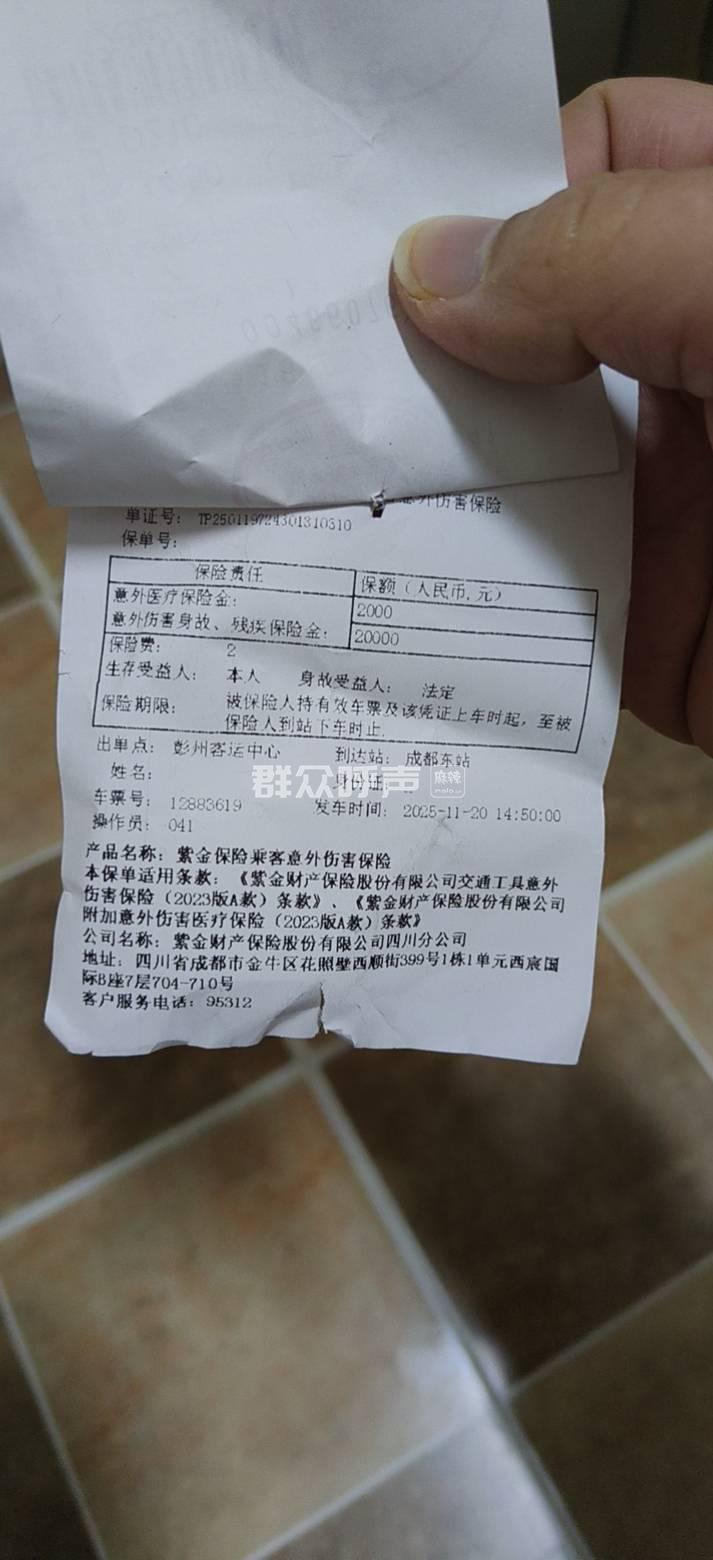 意外伤害保险
单证号： TP250119724301310310
保单号：
保险责任 保额（人民币,元）
意外医疗保险金： 2000
意外伤害身故、残疾保险金： 20000
保险费： 2
生存受益人： 本人 身故受益人： 法定
保险期限： 被保险人持有效车票及该凭证上车时起，至被
保险人到站下车时止.
出单点： 彭州客运中心 到达站： 成都东站
姓名： 身份证：
群众呼声 麻辣
车票号： 12883619 发车时间： 2025-11-20 14:50:00
操作员： 041
产品名称：紫金保险乘客意外伤害保险
本保单适用条款：《紫金财产保险股份有限公司交通工具意外
伤害保险（2023版A款）条款》、《紫金财产保险股份有限公司
附加意外伤害医疗保险（2023版A款）条款》
公司名称：紫金财产保险股份有限公司四川分公司
地址：四川省成都市金牛区花照壁西顺街399号1栋1单元西宸国
际B座7层704-710号
客户服务电话：95312